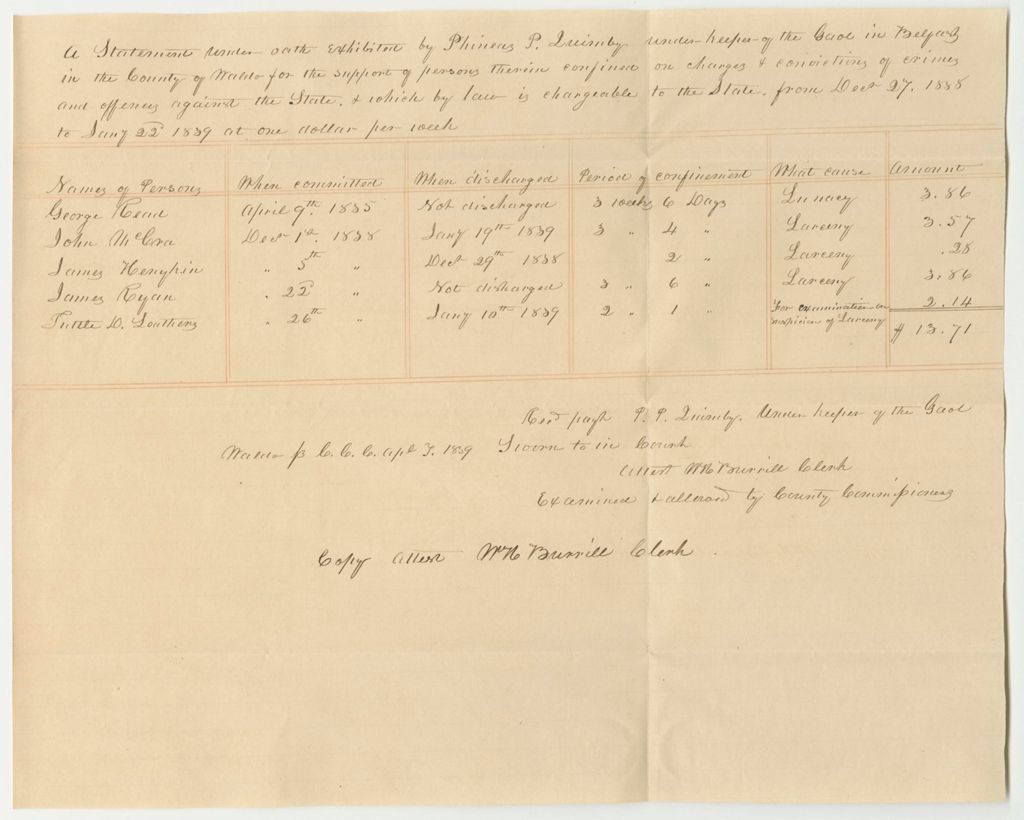 A Statement under oath exhibited by Phineas P. Quimby under keeper of the Gaol in Belfast
in the County of Waldo for the support of persons therein confined on charges & convictions of crimes
and offences against the State, & which by law is chargeable to the State, from Decr 27. 1838
to Jany 22d 1839 at one dollar per week
Names of Persons When committed When discharged Period of confinement What cause Amount
George Read April 9th. 1835 Not discharged 3 weeks 6 Days Lunacy 3.86
John McCra Decr 1st. 1838 Jany 19th 1839 3 " 4 " Larceny 3.57
James Henyhin " 5th " Decr 29th 1838 2 " Larceny .28
James Ryan " 22d " Not discharged 3 " 6 " Larceny 3.86
Tuttle D. Southers " 26th " Jany 10th 1839 2 " 1 " For examination on suspicion of Larceny 2.14
$ 13.71
Recd payt P. P. Quimby. Under keeper of the Gaol
Waldo ss C. C. C. Apl T. 1839 Sworn to in Court
Attest Wm H Burrill Clerk
Examined & allowed by County Commissioners
Copy Attest Wm H Burrill Clerk